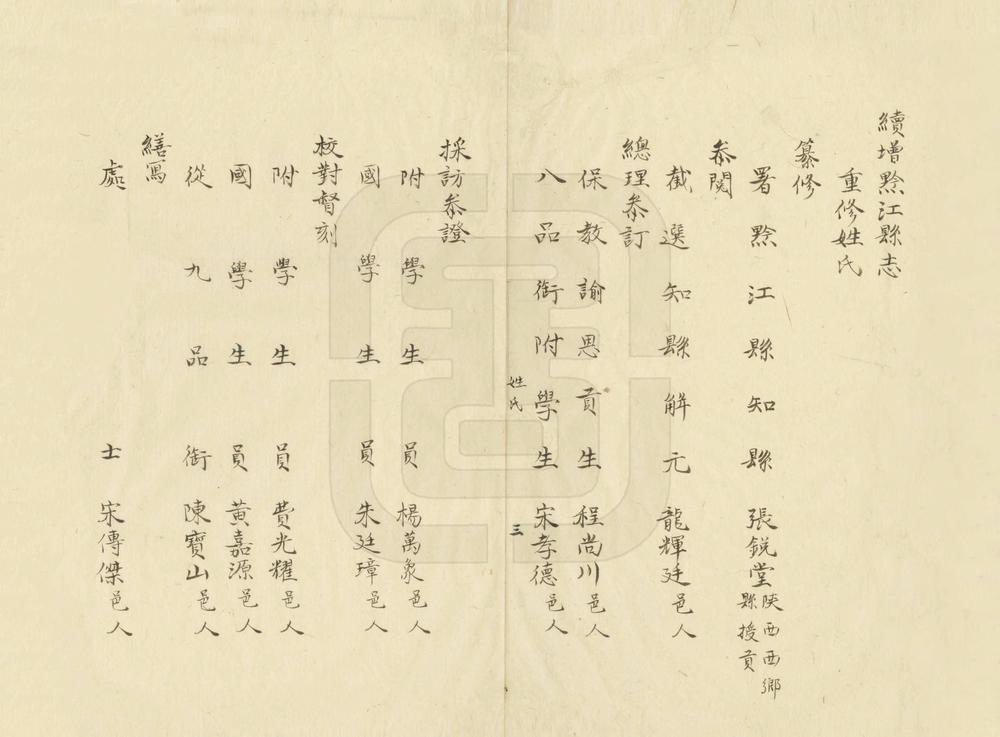 續增黔江縣志
重修姓氏
纂修
署黔江縣知縣張銳堂陝西西鄉縣授貢
叅閱
截選知縣解元龍輝廷邑人
總理叅訂
保教諭恩貢生程尚川邑人
八品銜附學生宋孝德邑人
姓氏
三
採訪叅證
附學生員楊萬象邑人
國學生員朱廷璋邑人
校對督刻
附學生員費光耀邑人
國學生員黃嘉源邑人
從九品銜陳寶山邑人
繕寫
處士宋傳傑邑人